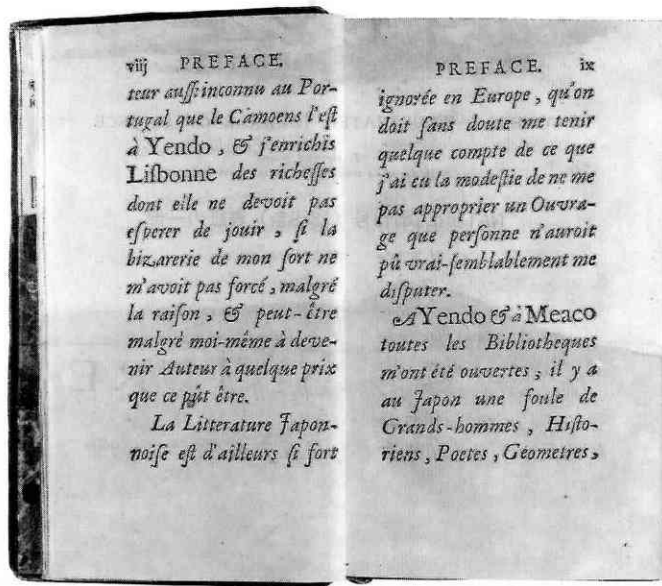 viij PREFACE.
teur auſſi inconnu au Por-
tugal que le Camoens l'eſt
à Yendo, & j'enrichis
Liſbonne des richeſſes
dont elle ne devoit pas
eſperer de jouir, ſi la
bizarerie de mon ſort ne
m'avoit pas forcé, malgré
la raiſon, & peut-être
malgré moi-même à deve-
nir Auteur à quelque prix
que ce pût être.
La Litterature Japon-
noiſe eſt d'ailleurs ſi fort
PREFACE. ix
ignorée en Europe, qu'on
doit ſans doute me tenir
quelque compte de ce que
j'ai eu la modeſtie de ne me
pas approprier un Ouvra-
ge que perſonne n'auroit
pû vrai-ſemblablement me
diſputer.
A Yendo & à Meaco
toutes les Bibliotheques
m'ont été ouvertes; il y a
au Japon une foule de
Grands-hommes, Hiſto-
riens, Poetes, Géometres,